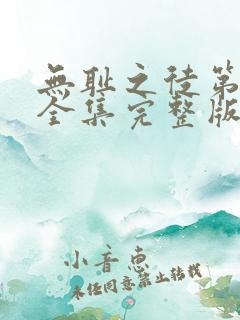 無耻之徒第
全集完整版
小音惠
未经同意禁止转载